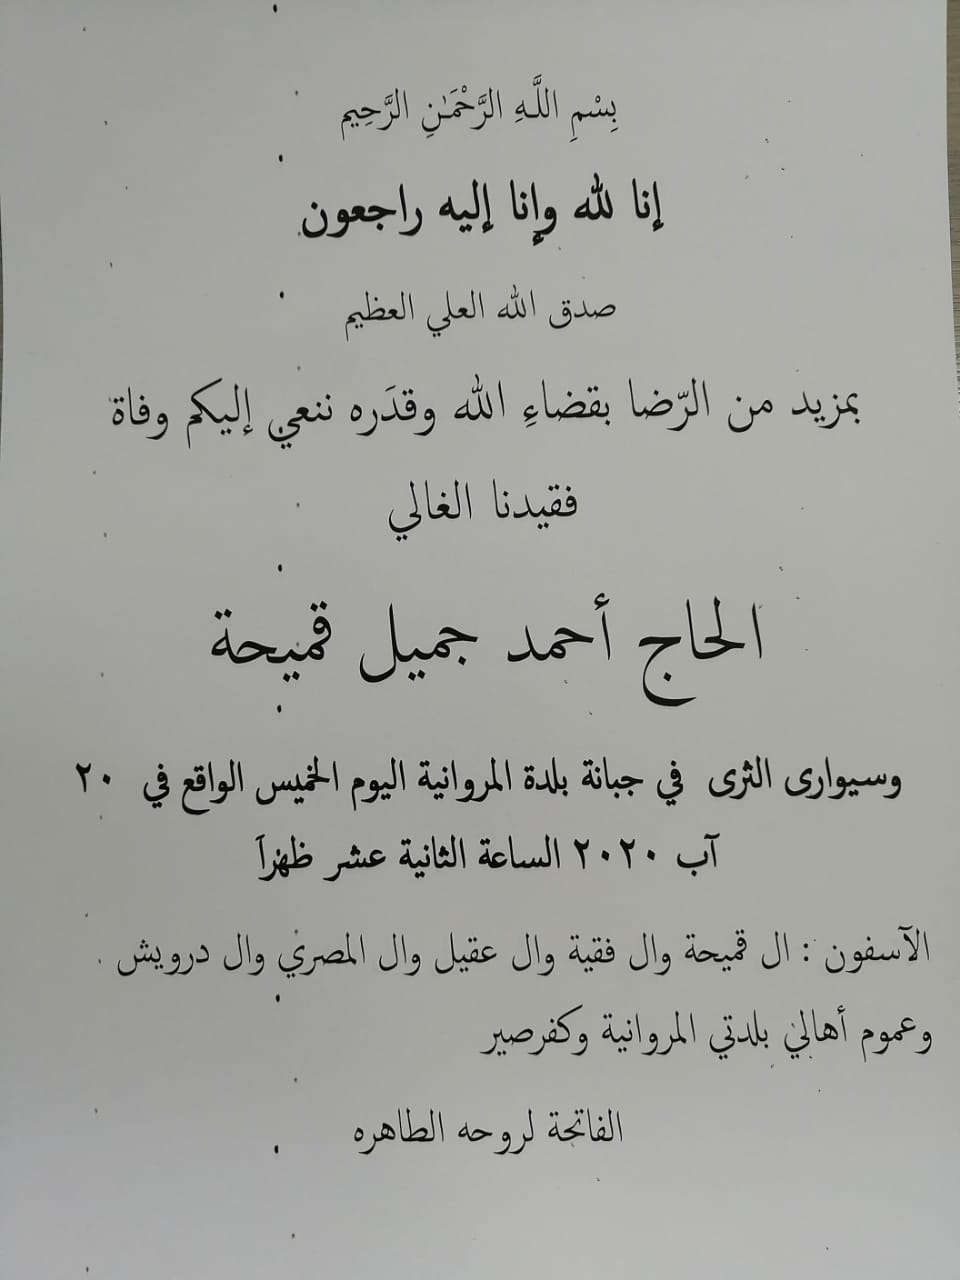 بِسْمِ اللَّهِ الرَّحْمَٰنِ الرَّحِيم
إنا لله وإنا إليه راجعون
صدق الله العلي العظيم
بمزيد من الرّضا بقضاءِ الله وقدَره ننعي إليكم وفاة
فقيدنا الغالي
الحاج أحمد جميل قميحة
وسيوارى الثرى في جبانة بلدة المروانية اليوم الخميس الواقع في ٢٠
آب ٢٠٢٠ الساعة الثانية عشر ظهراَ
الآسفون : ال قميحة وال فقية وال عقيل وال المصري وال درويش .
وعموم أهالي بلدتي المروانية وكفرصير
الفاتحة لروحه الطاهره